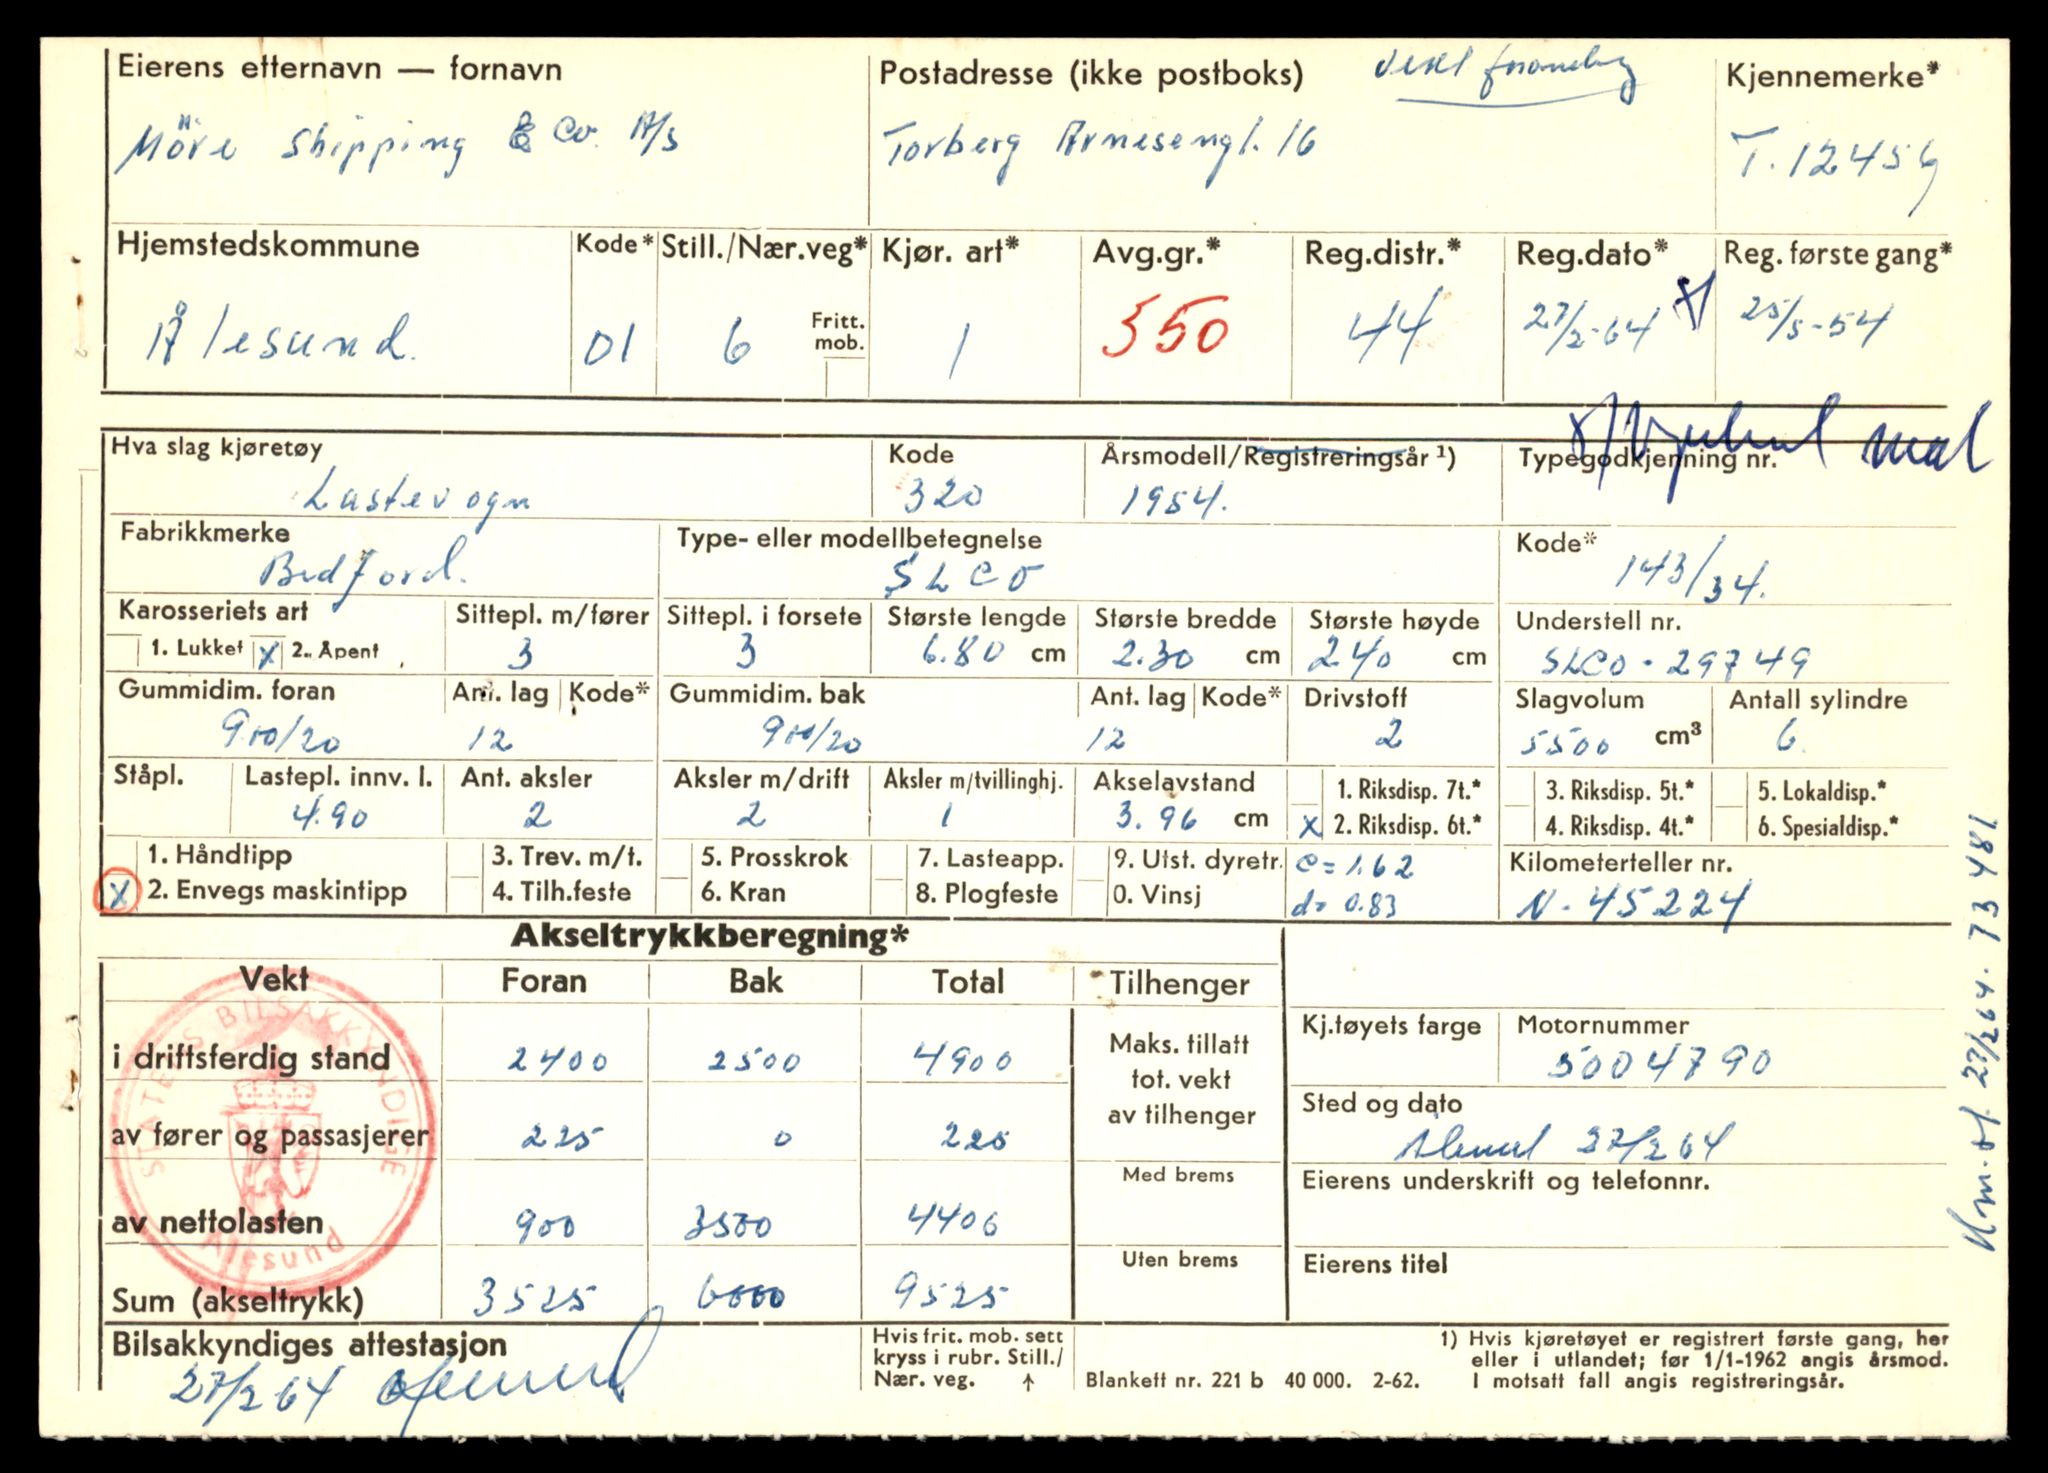 Eierens etternavn — fornavn
Møre Shipping & Co. A/S
Postadresse (ikke postboks)
Torberg Arnesengt. 16
Kjennemerke*
T. 12456
Hjemstedskommune
Ålesund.
Kode*
01
Still./Nær.veg*
6
Fritt. mob.
Kjør. art*
1
Avg.gr.*
550
Reg.distr.*
44
Reg.dato*
27/2-64
Reg. første gang*
25/5-54
Hva slag kjøretøy
Lastevogn
Kode
320
Årsmodell/Registreringsår ¹)
1954.
Typegodkjenning nr.
Fabrikkmerke
Bedford.
Type- eller modellbetegnelse
SLCO
Kode*
143/34.
Karosseriets art
1. Lukket x 2. Åpent
Sittepl. m/fører
3
Sittepl. i forsete
3
Største lengde
6.80 cm
Største bredde
2.30 cm
Største høyde
240 cm
Understell nr.
SLCO - 29749
Gummidim. foran
900/20
Ant. lag
12
Kode*
Gummidim. bak
900/20
Ant. lag
12
Kode*
Drivstoff
2
Slagvolum
5500 cm³
Antall sylindre
6.
Ståpl.
Lastepl. innv. l.
4.90
Ant. aksler
2
Aksler m/drift
2
Aksler m/tvillinghj.
1
Akselavstand
3.96 cm
1. Riksdisp. 7t.*
x 2. Riksdisp. 6t.*
3. Riksdisp. 5t.*
4. Riksdisp. 4t.*
5. Lokaldisp.*
6. Spesialdisp.*
1. Håndtipp
x 2. Envegs maskintipp
3. Trev. m/t.
4. Tilh.feste
5. Prosskrok
6. Kran
7. Lasteapp.
8. Plogfeste
9. Utst. dyretr.
0. Vinsj
c = 1.62
d = 0.83
Kilometerteller nr.
N - 45224
Akseltrykkberegning*
Vekt Foran Bak Total Tilhenger
i driftsferdig stand 2400 2500 4900
av fører og passasjerer 225 0 225
av nettolasten 900 3500 4400
Sum (akseltrykk) 3525 6000 9525
Maks. tillatt
tot. vekt
av tilhenger
Med brems
Uten brems
Kj.tøyets farge
Motornummer
5004790
Sted og dato
Ålesund 27/2 64
Eierens underskrift og telefonnr.
Eierens titel
STATENS BILSAKKYNDIGE
Ålesund
Bilsakkyndiges attestasjon
27/2 64
Hvis frit. mob. sett
kryss i rubr. Still./
Nær. veg. ↑
Blankett nr. 221 b 40 000. 2-62.
1) Hvis kjøretøyet er registrert første gang, her
eller i utlandet; før 1/1-1962 angis årsmod.
I motsatt fall angis registreringsår.
27/2 64. 73481.